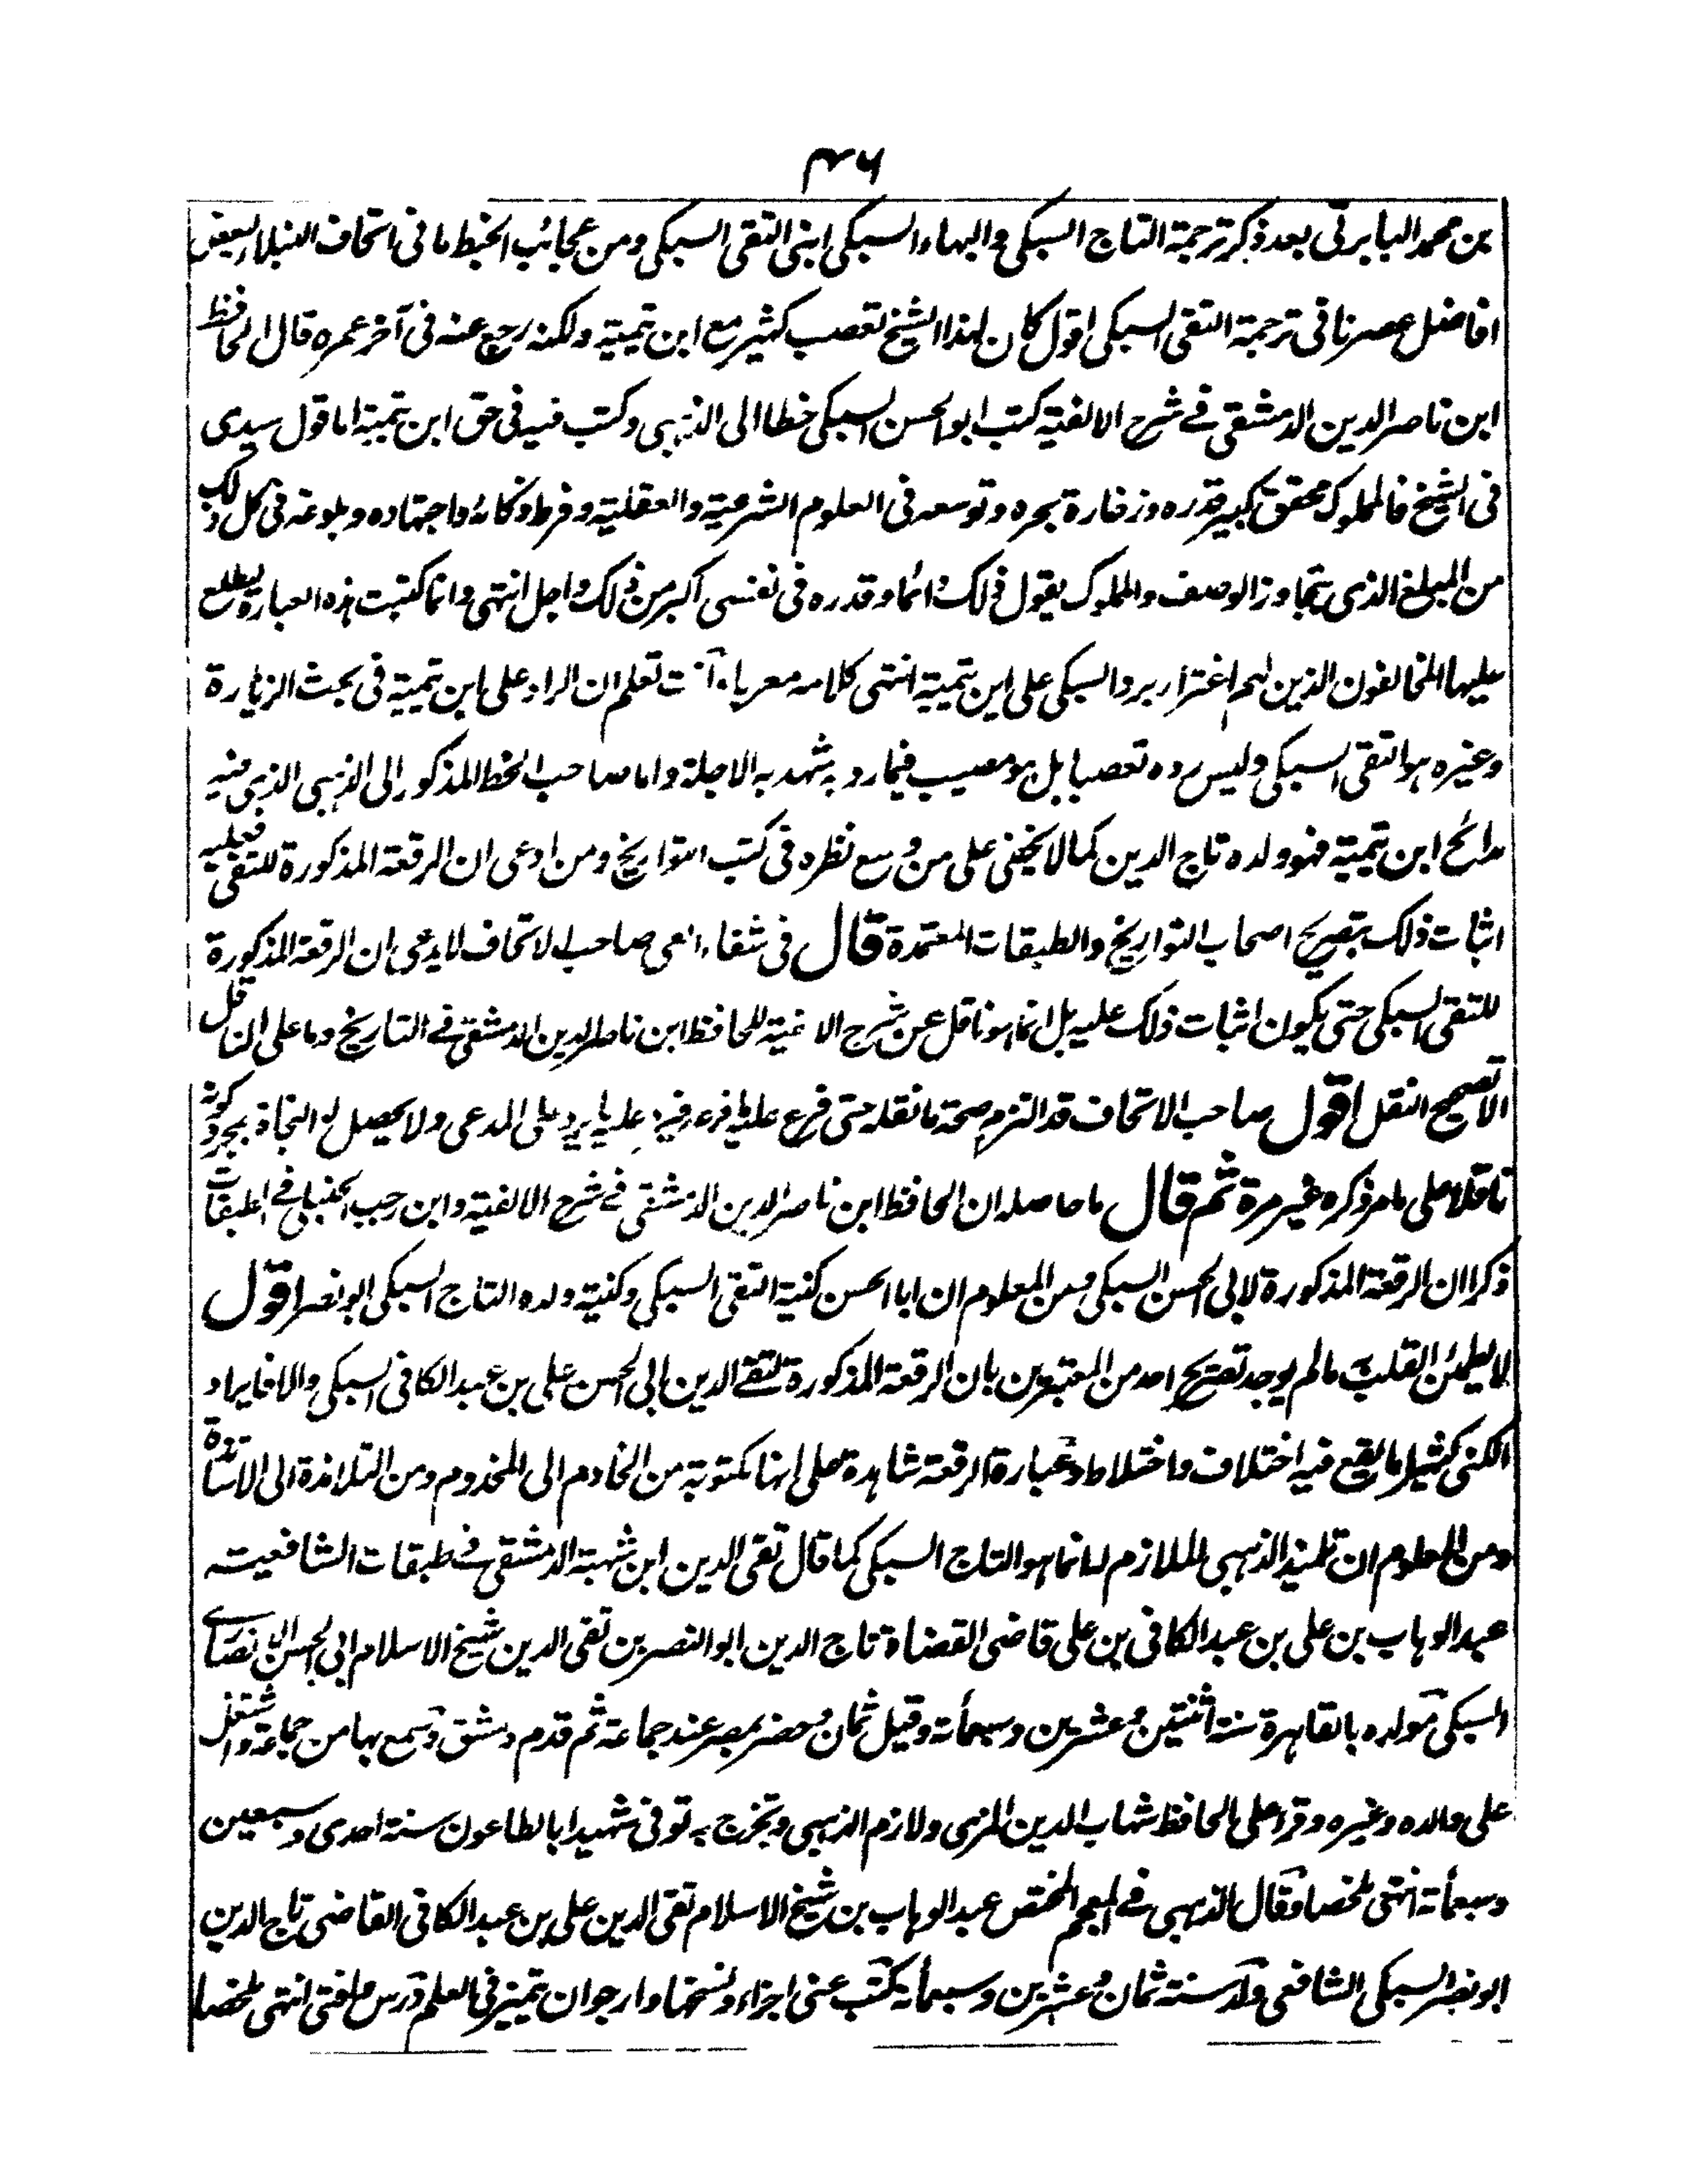 ٤٦
بن محمد البابرتى بعد ذكر ترجمة التاج السبكى والبهاء السبكى ابنى التقى السبكى ومن عجائب الخبط ما فى اتحاف النبلاء لبعض
افاضل عصرنا فى ترجمة التقى السبكى اقول كان لهذا الشيخ تعصب كثير مع ابن تيمية ولكنه رجع عنه فى آخر عمره قال الحافظ
ابن ناصر الدين الدمشقى فے شرح الالفية كتب ابو الحسن السبكى خطا الى الذهبى وكتب فيه فى حق ابن تيمية اما قول سيدى
فى الشيخ فالمملوك محقق كبير قدره وزخارة بحره وتوسعه فى العلوم الشرعية والعقلية وفرط ذكائه واجتهاده وبلوغه فى كل ذلك
من المبلغ الذى يتجاوز الوصف والمملوك يقول ذلك دائما وقدره فى نفسى اكبر من ذلك واجل انتهى وانما كتبت هذه العبارة ليطلع
عليها المخالفون الذين لهم اغترار برد السبكى على ابن تيمية انتهى كلامه معربا وانت تعلم ان الراد على ابن تيمية فى بحث الزيارة
وغيره هو التقى السبكى وليس رده تعصبا بل هو مصيب فيما رد به شهد به الاجلة واما صاحب الخط المذكور الى الذهبى الذى فيه
مدائح ابن تيمية فهو ولده تاج الدين كما لا يخفى على من وسع نظره فى كتب التواريخ ومن ادعى ان الرقعة المذكورة للتقى فعليه
اثبات ذلك بتصريح اصحاب التواريخ والطبقات المعتمدة قال فى شفاء العى صاحب الاتحاف لا يدعى ان الرقعة المذكورة
للتقى السبكى حتى يكون اثبات ذلك عليه بل انما هو ناقل عن شرح الالفية للحافظ ابن ناصر الدين الدمشقى فے التاريخ وما على الناقل
الا تصحيح النقل اقول صاحب الاتحاف قد التزم صحة ما نقله حتى فرع عليه ما فرع فيرد عليه ما يرد على المدعى ولا يحصل له النجاة بمجرد كونه
ناقلا على ما مر ذكره غير مرة ثم قال ما حاصله ان الحافظ ابن ناصر الدين الدمشقى فے شرح الالفية وابن رجب الحنبلى فے الطبقات
ذكرا ان الرقعة المذكورة لابى الحسن السبكى ومن المعلوم ان ابا الحسن كنية التقى السبكى وكنية ولده التاج السبكى ابو نصر اقول
لا يطمئن القلب ما لم يوجد تصريح احد من المعتبرين بان الرقعة المذكورة لتقے الدين ابى الحسن على بن عبد الكافى السبكى والا فايراد
الكنى كثيرا ما يقع فيه اختلاف واختلاط وعبارة الرقعة شاهدة على انها مكتوبة من الخادم الى المخدوم ومن التلامذة الى الاساتذة
ومن المعلوم ان تلميذ الذهبى الملازم له انما هو التاج السبكى كما قال تقى الدين ابن شهبة الدمشقى فے طبقات الشافعية
عبد الوهاب بن على بن عبد الكافى بن على قاضى القضاة تاج الدين ابو النصر بن تقى الدين شيخ الاسلام ابى الحسن الانصارے
السبكى مولده بالقاهرة سنة اثنتين وعشرين وسبعمائة وقيل ثمان وحضر بمصر عند جماعة ثم قدم دمشق وسمع بها من جماعة واشتغل
على والده وغيره وقرأ على الحافظ شهاب الدين المزى ولازم الذهبى وتخرج به توفى شهيدا بالطاعون سنة احدى وسبعين
وسبعمائة انتهى ملخصا وقال الذهبى فے المعجم المختص عبد الوهاب بن شيخ الاسلام تقى الدين على بن عبد الكافى القاضى تاج الدين
ابو نصر السبكى الشافعى ولد سنة ثمان وعشرين وسبعمائة كتب عنى اجزاء ونسخها وارجو ان يتميز فى العلم درس وافتى انتهى ملخصا